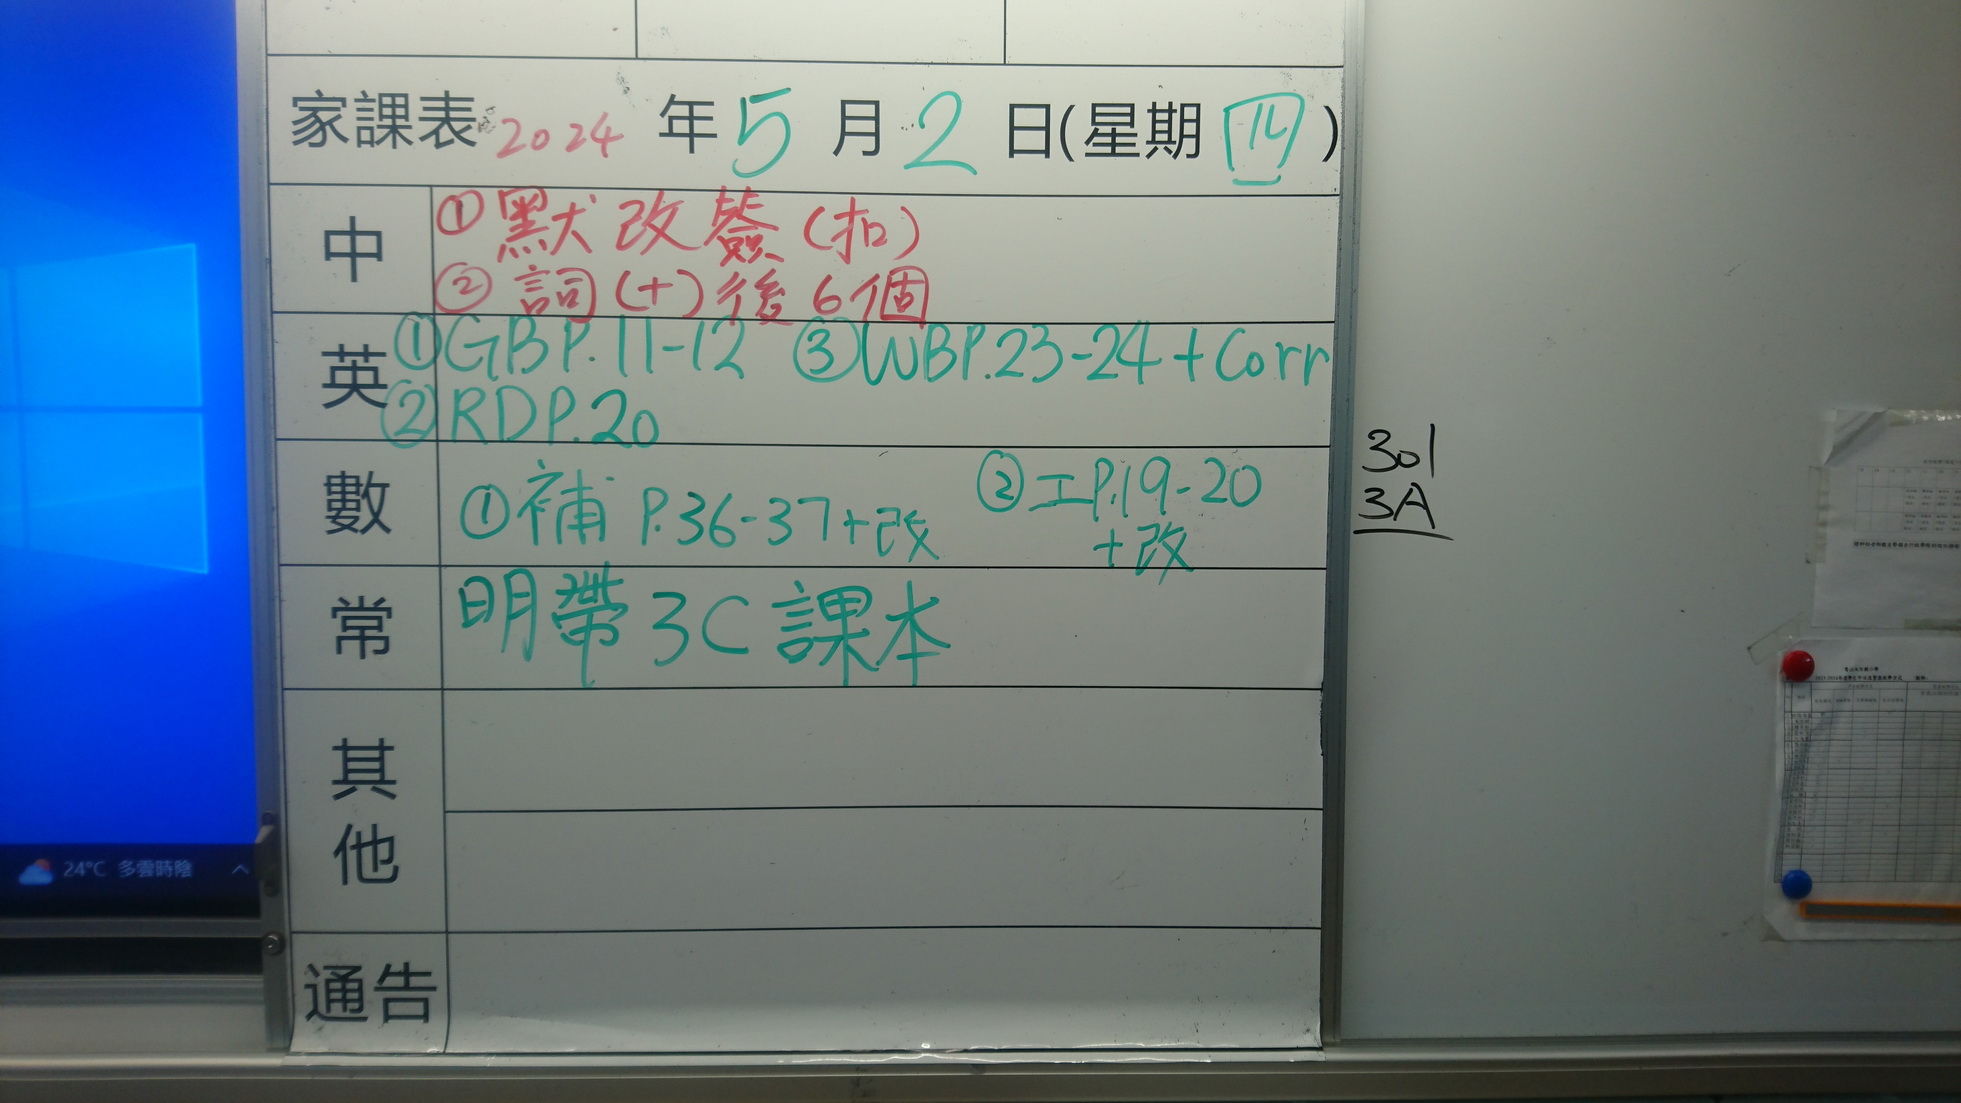 家課表 2024 年 5 月 2 日(星期 四 )
中
① 默 改 簽 (扣)
② 詞 (十) 後 6 個
英
① GB P.11-12 ③ WB P.23-24 + Corr
② RD P.20
數
① 補 P.36-37+改 ② 工 P.19-20
+改
常
明帶 3C 課本
其他
通告
301
3A
24°C 多雲時陰